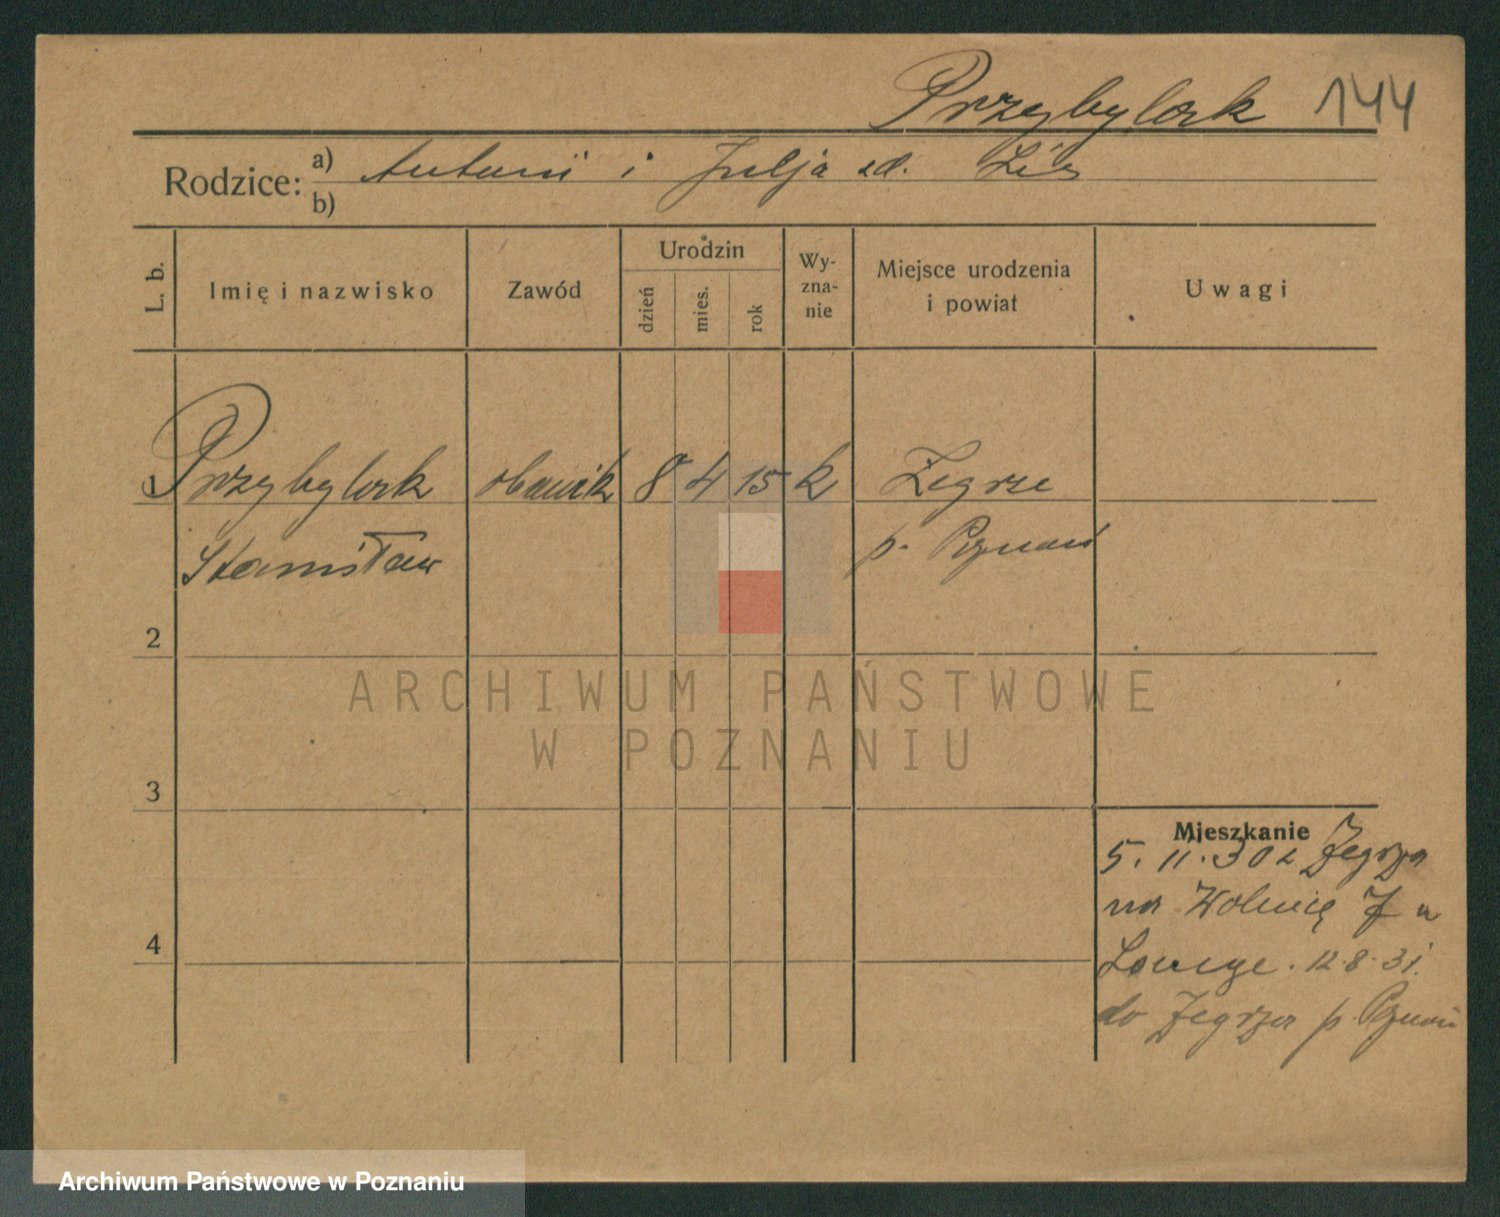 Przybylak 144
Rodzice: a) Antoni i Julja zd. Lis
b)
L. b.
Imię i nazwisko
Zawód
Urodzin
dzień
mies.
rok
Wy-
zna-
nie
Miejsce urodzenia
i powiat
Uwagi
1 Przybylak 8 4 15 k Żegrze
Stanisław p. Poznań
2
ARCHIWUM PAŃSTWOWE
W POZNANIU
3
Mieszkanie
5. 11. 30 z Żegrza
na Wolnicę 7 u
12.8.31.
4
do Żegrza p. Poznań
Archiwum Państwowe w Poznaniu